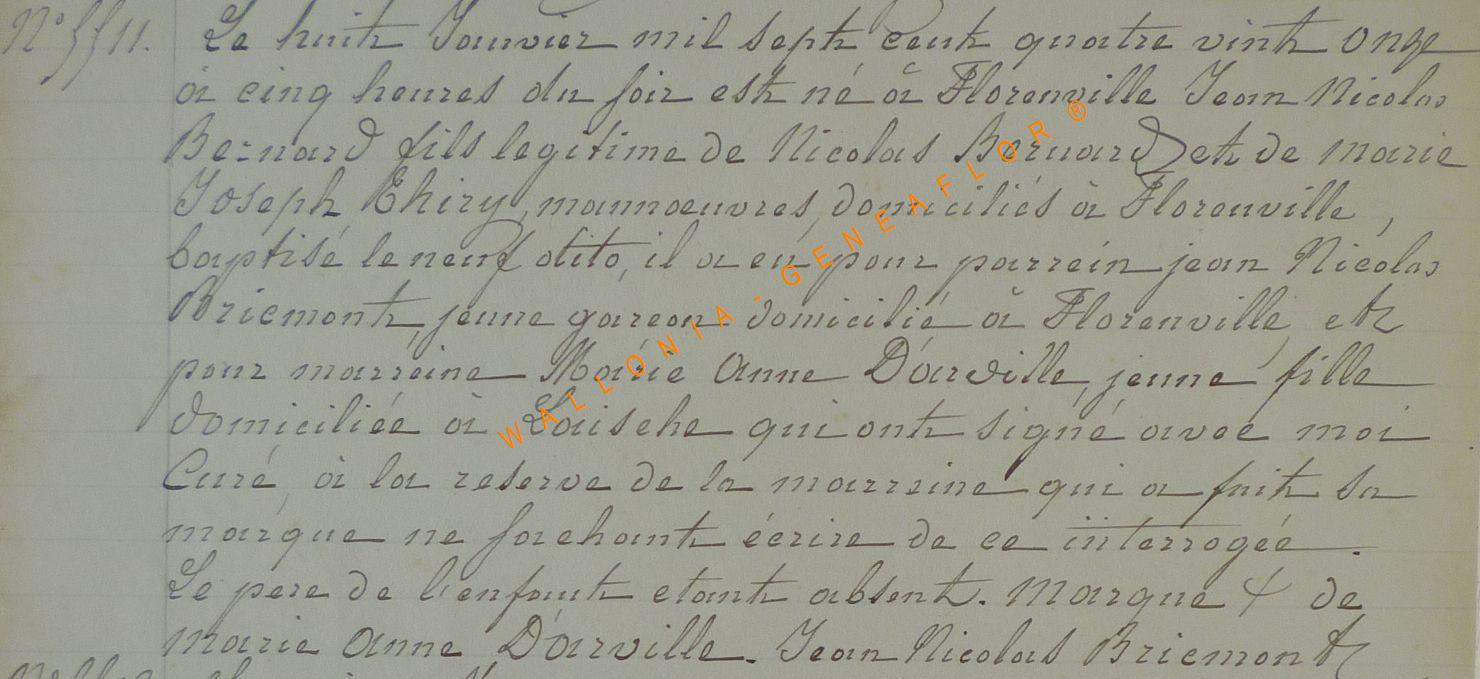 N° ff 11. Le huit Janvier mil sept cent quatre vint onze
à cinq heures du soir est né à Florenville Jean Nicolas
Bernard fils legitime de Nicolas Bernard et de marie
Joseph Thiry, mannoeuvres, domiciliés à Florenville,
baptisé le neuf dito, il a eu pour parrein jean Nicolas
Bricmont, jeune garcon domicilié à Florenville, et
pour marreine Marie Anne Darville, jeune fille
domiciliée à qui ont signé avec moi
Curé, à la reserve de la marreine qui a fait sa
marque ne sachant écrire de ce interrogée.
Le pere de l'enfant etant absent. Marque + de
marie Anne Darville. Jean Nicolas Bricmont
WALLONIA - GENEAFLOR ®